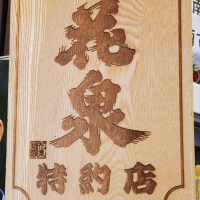 花
泉
特約店